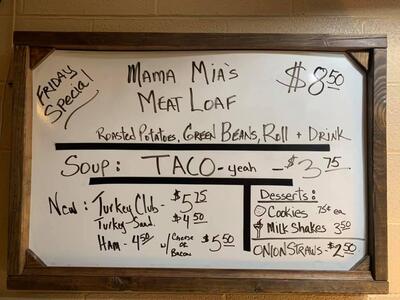 FRIDAY
Special
MAMA MIA'S
MEAT LOAF
$8.50
ROASTED POTATOES, GREEN BEANS, ROLL + DRINK
SOUP: TACO-yeah - $3.75
New: Turkey Club - $5.75
Turkey Sand. $4.50
HAM - 4.50 w/ CHEESE OR BACON $5.50
Desserts:
Cookies 75¢ ea
Milk Shakes 3.50
ONION STRAWS - $2.50